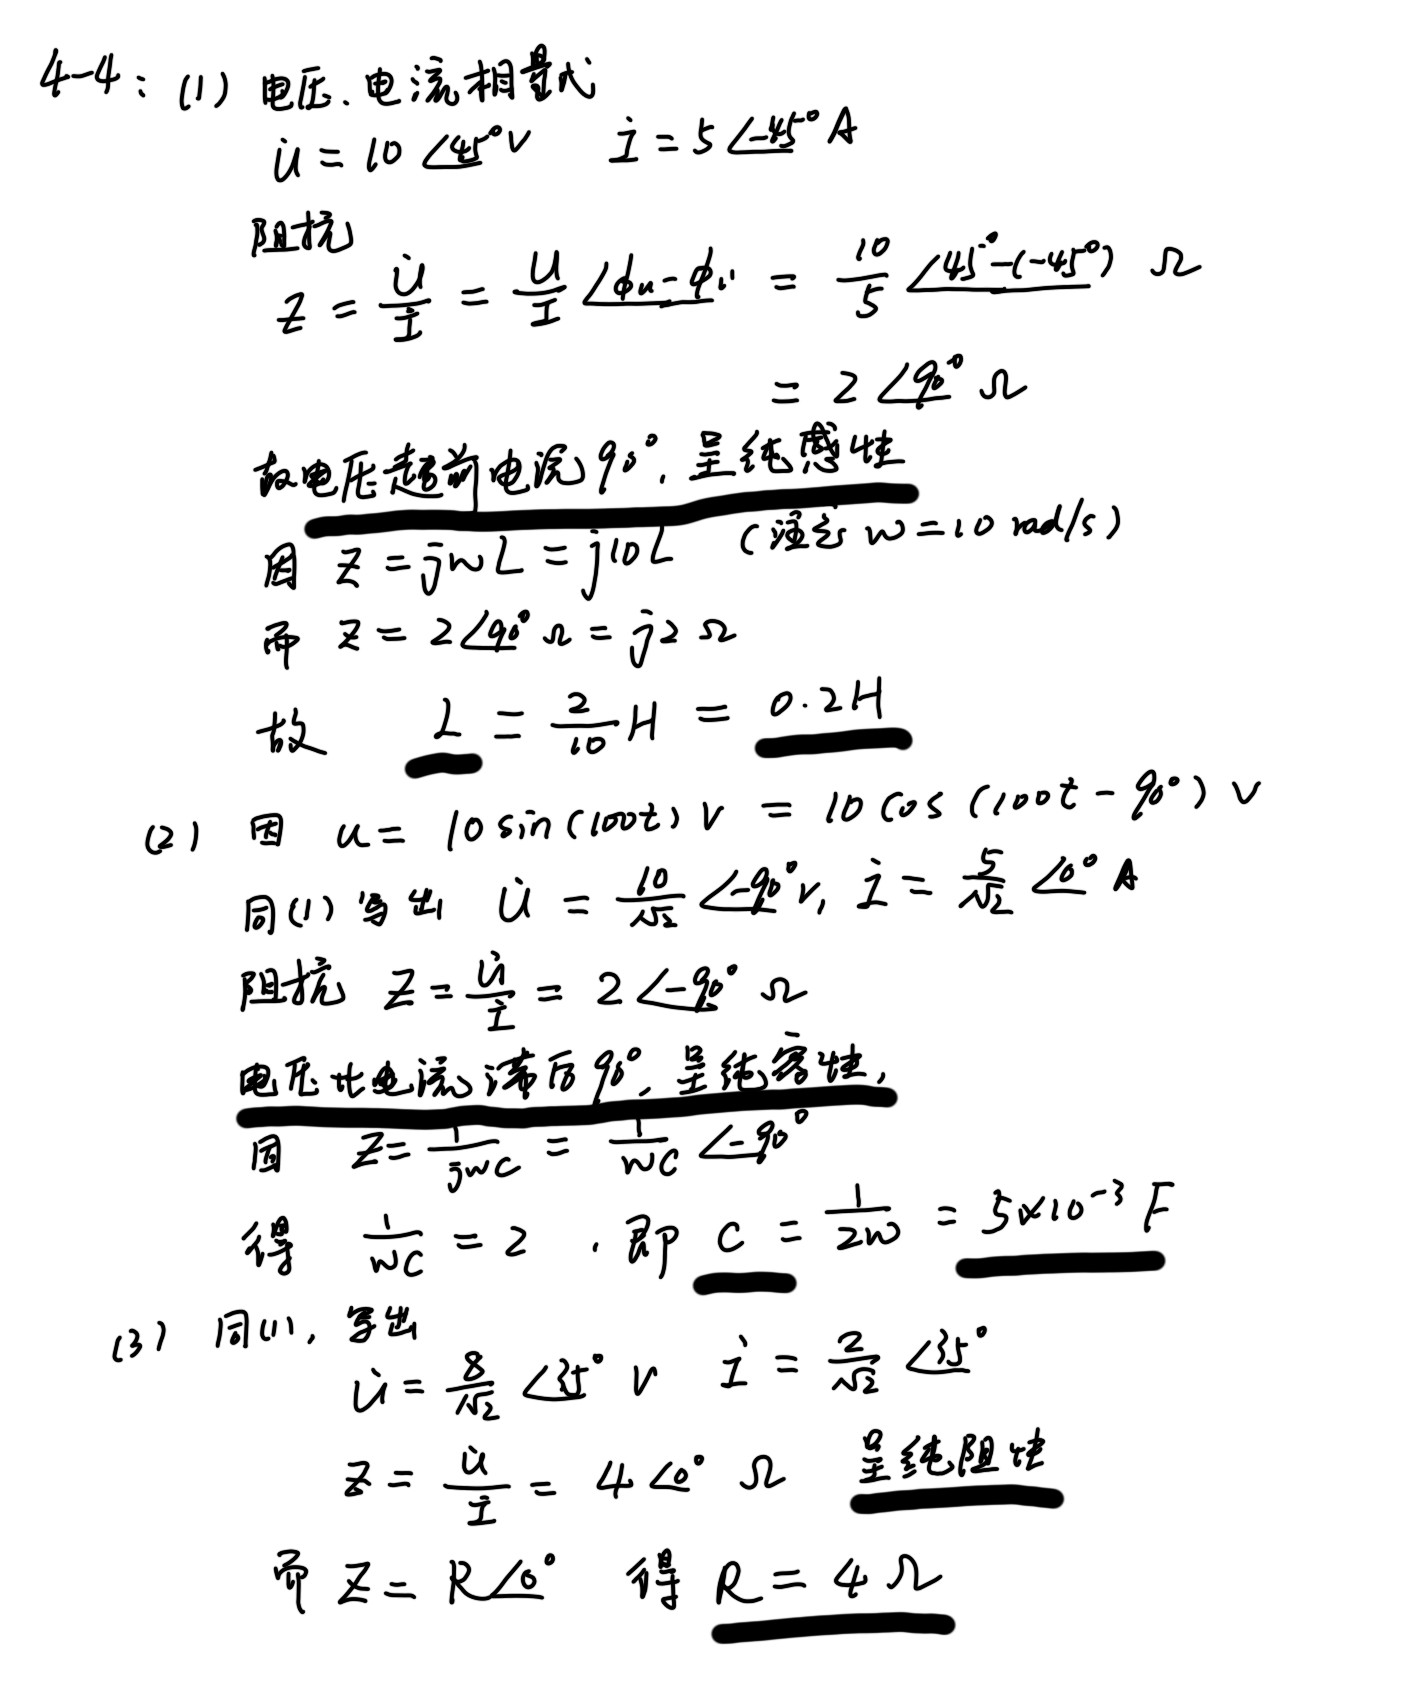 4-4: (1) 电压.电流相量式
U̇ = 10∠45°V İ = 5∠-45°A
阻抗
Z = U̇/İ = U/I ∠ϕu-ϕi = 10/5 ∠45°-(-45°) Ω
= 2∠90° Ω
故电压超前电流90°, 呈纯感性
因 Z = jwL = j10L (注意 w = 10 rad/s)
而 Z = 2∠90° Ω = j2 Ω
故 L = 2/10 H = 0.2H
(2) 因 u = 10 sin(100t) V = 10 cos (100t - 90°) V
同(1)写出 U̇ = 10/√2 ∠-90° V, İ = 5/√2 ∠0° A
阻抗 Z = U̇/İ = 2∠-90° Ω
电压比电流滞后90°, 呈纯容性,
因 Z = 1/jwC = 1/wC ∠-90°
得 1/wC = 2 . 即 C = 1/2w = 5×10⁻³ F
(3) 同(1), 写出
U̇ = 8/√2 ∠35° V İ = 2/√2 ∠35°
Z = U̇/İ = 4∠0° Ω 呈纯阻性
而 Z = R∠0° 得 R = 4 Ω